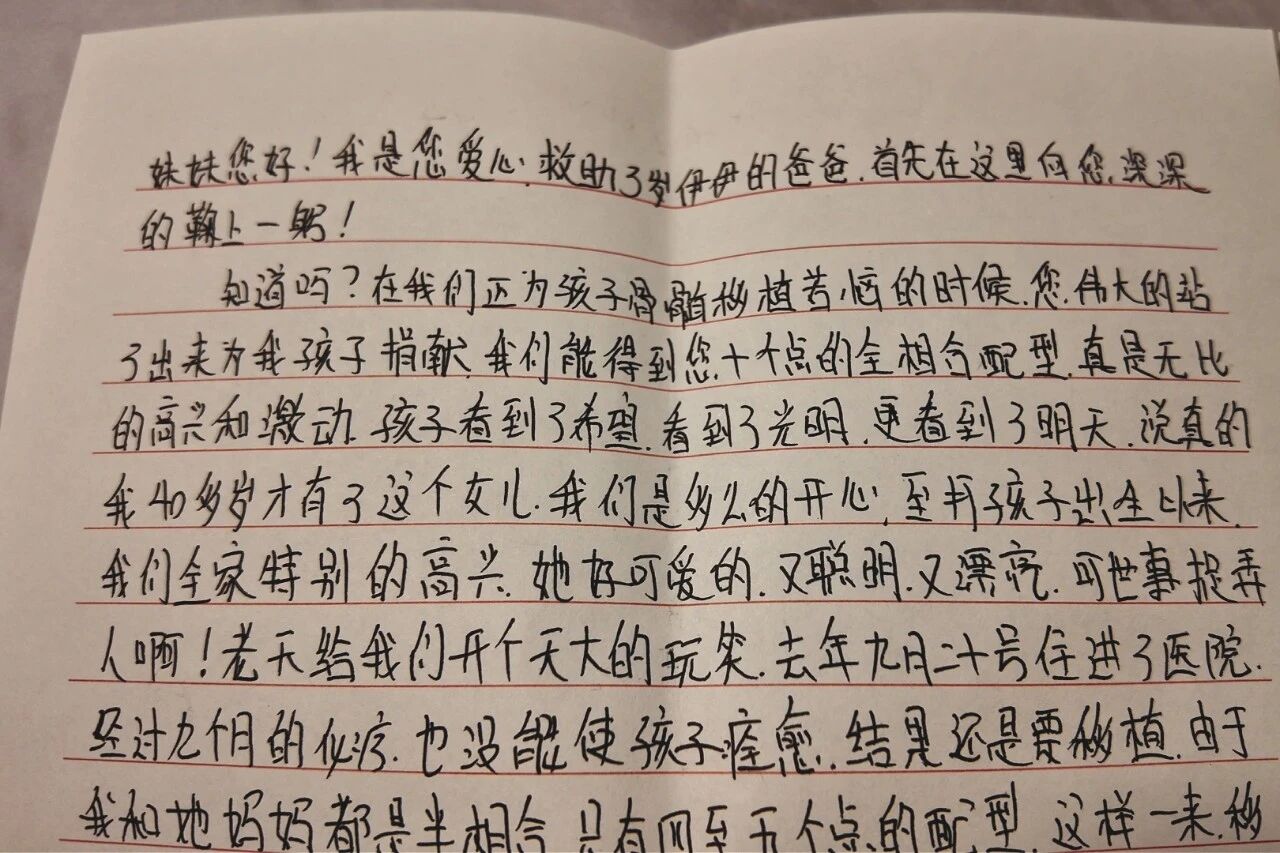 妹妹您好！我是您爱心救助3岁伊伊的爸爸.首先在这里向您深深
的鞠上一躬！
知道吗？在我们正为孩子骨髓移植苦恼的时候.您伟大的站
了出来为我孩子捐献.我们能得到您十个点的全相合配型.真是无比
的高兴和激动.孩子看到了希望.看到了光明.更看到了明天.说真的
我40多岁才有了这个女儿.我们是多么的开心.至打孩子出生以来.
我们全家特别的高兴.她好可爱的.又聪明.又漂亮.可世事捉弄
人啊！老天给我们开个天大的玩笑.去年九月二十号住进了医院.
经过九个月的化疗.也没能使孩子痊愈.结果还是要移植.由于
我和她妈妈都是半相合.只有四至五个点的配型.这样一来.移